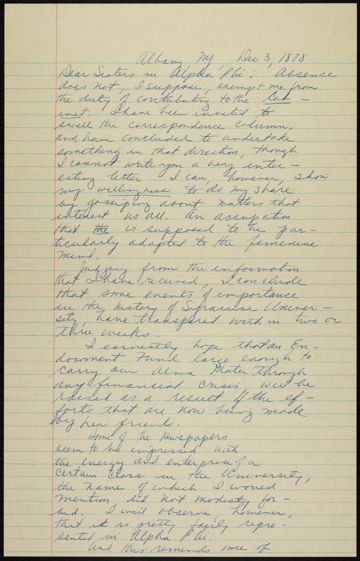 Albany NY Dec 3, 1878
Dear Sisters in Alpha Phi: Absence
does not, I suppose, exempt me from
the duty of contributing to the Cab-
inet. I have been invited to
swell the correspondence column,
and have concluded to undertake
something in that direction, though
I cannot write you a very inter-
esting letter I can, however, show
my willingness to do my share
by gossiping about matters that
interest us all. An occupation
that the is supposed to be par-
ticularly adapted to the feminine
mind.
Judging from the information
that I have received, I conclude
that some events of importance
in the history of Syracuse Univer-
sity have transpired within two or
three weeks
I earnestly hope that an En-
dowment Fund large enough to
carry our Alma Mater through
any financial crisis, will be
raised as a result of the ef-
forts that are now being made
by her friends.
Some of the newspapers
seem to be impressed with
the energy and enterprise of a
certain class in the University,
the name of which I would
mention did not modesty for-
bid. I will observe, however,
that it is pretty fairly repre-
sented in Alpha Phi
And this reminds me of